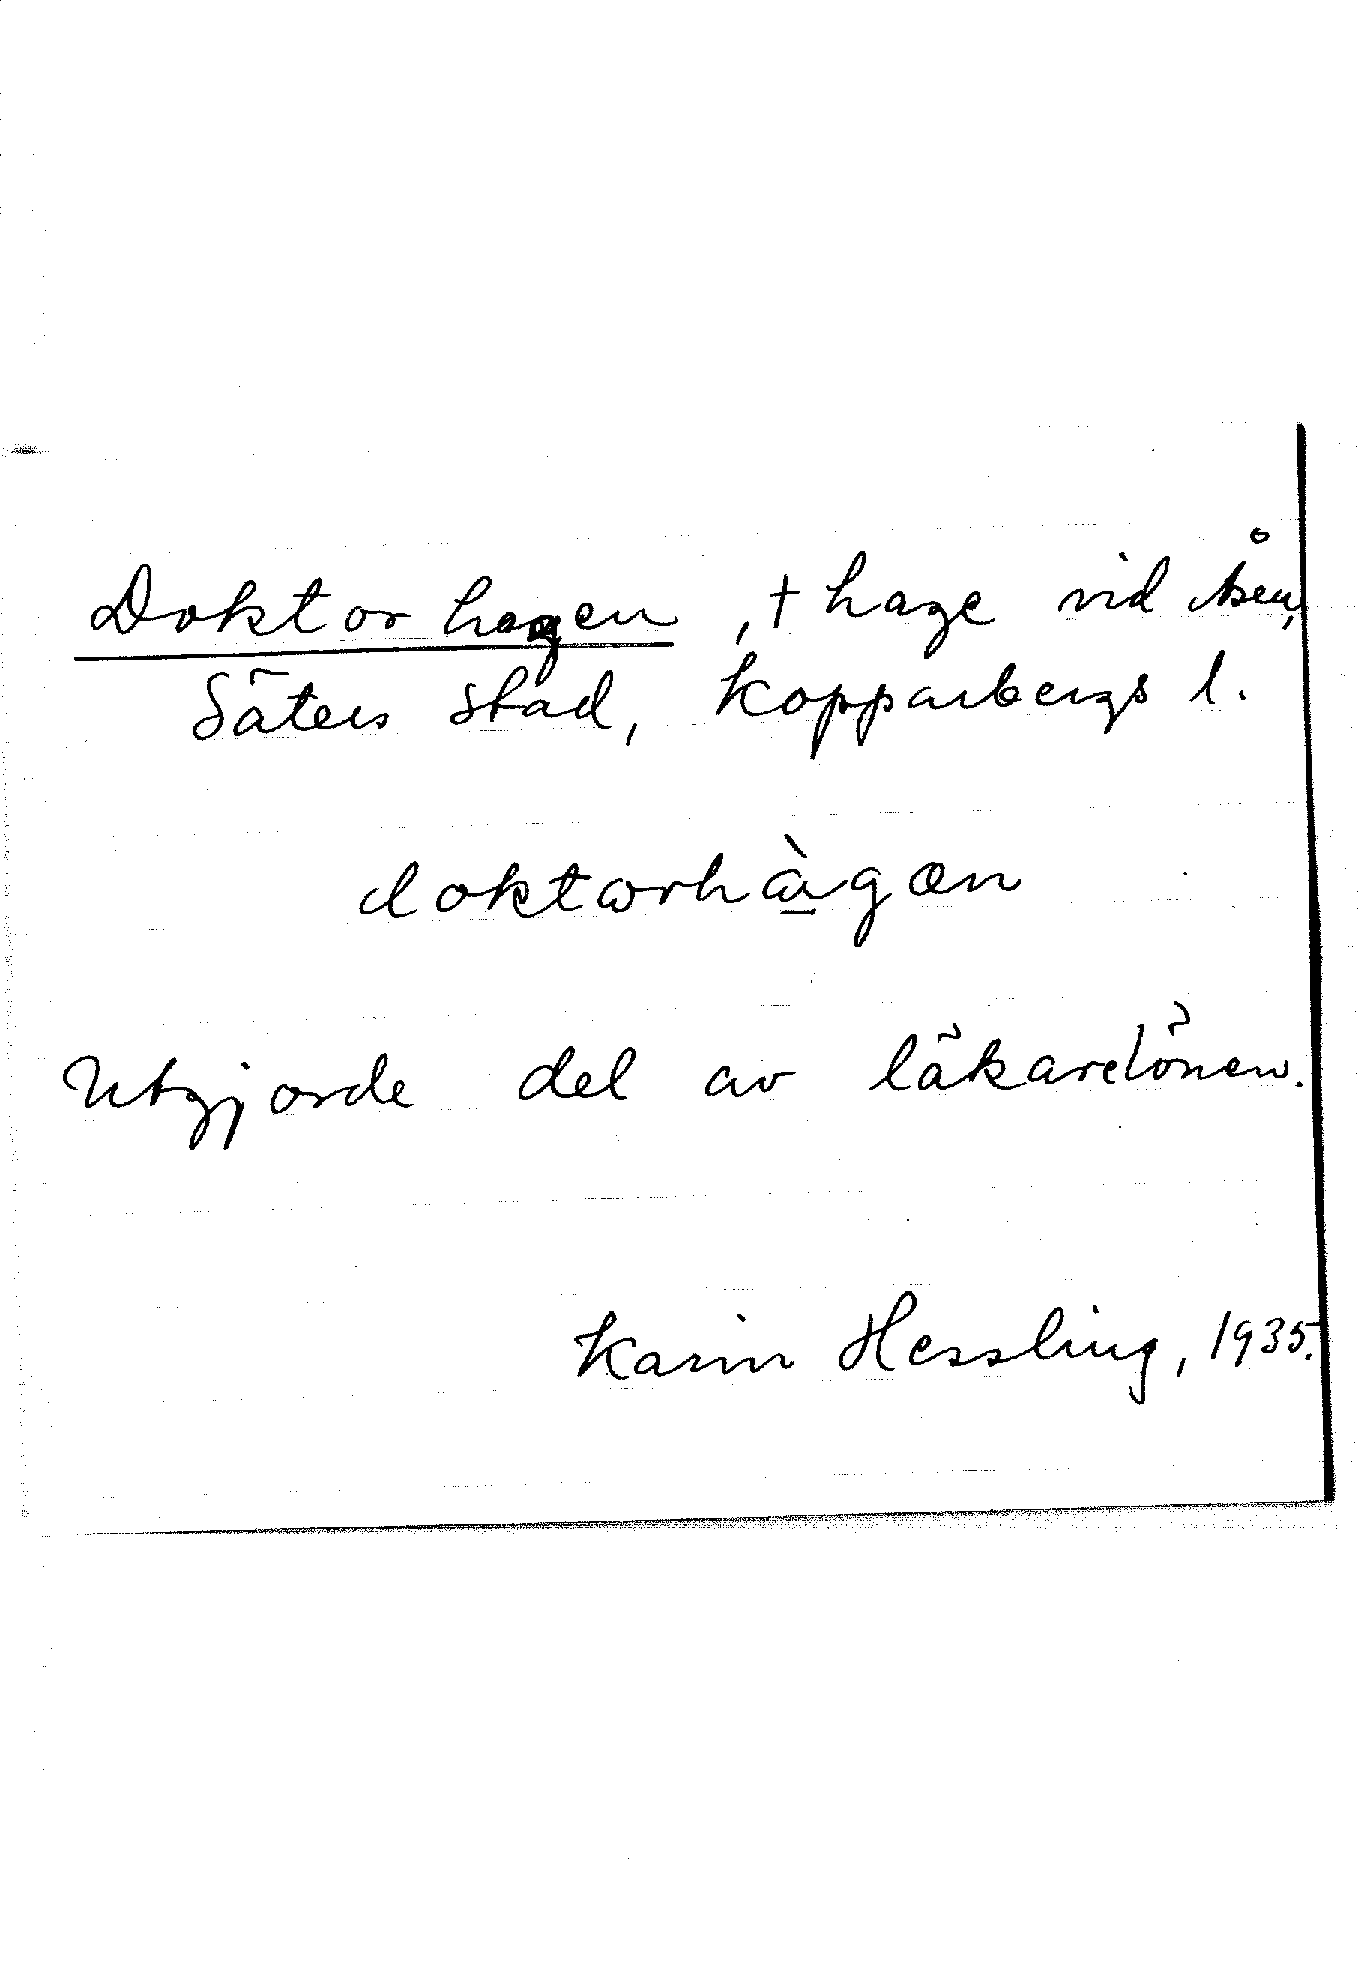 Doktorhagen, † hage vid Åsen,
Säters stad, Kopparbergs l.
doktωrhàgœn
Utgjorde del av läkarelönen.
Karin Hessling, 1935.